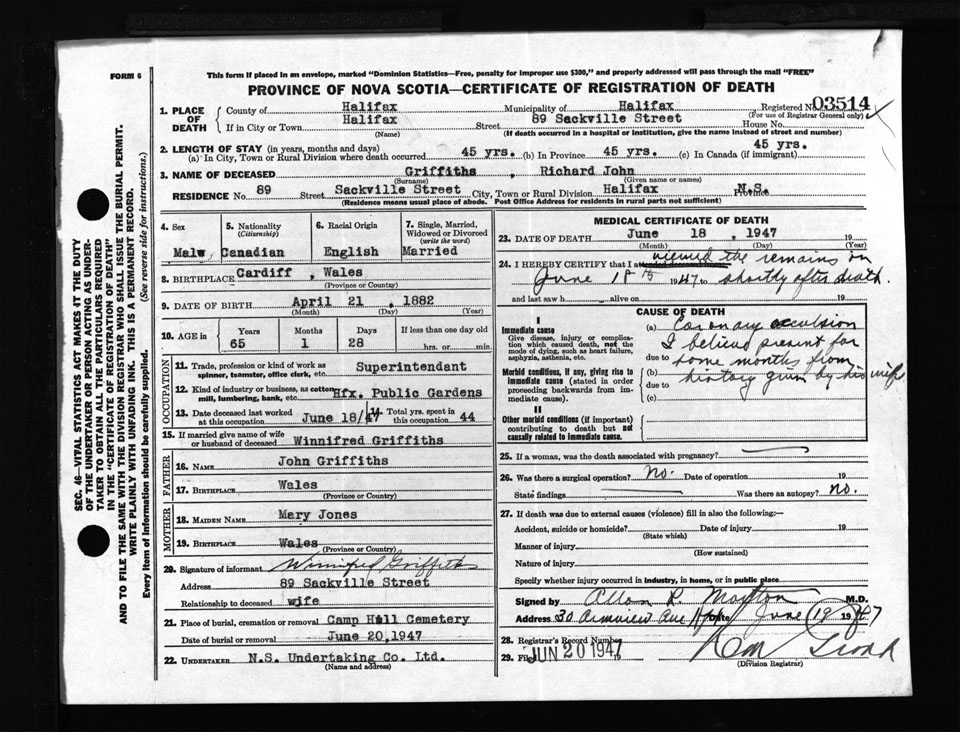 FORM 6
This form if placed in an envelope, marked "Dominion Statistics—Free, penalty for improper use $300," and properly addressed will pass through the mail "FREE"
PROVINCE OF NOVA SCOTIA—CERTIFICATE OF REGISTRATION OF DEATH
1. PLACE OF DEATH
County of Halifax Municipality of Halifax Registered No. 03514
(For use of Registrar General only)
If in City or Town Halifax Street 89 Sackville Street House No.
(Name) (If death occurred in a hospital or institution, give the name instead of street and number)
2. LENGTH OF STAY (in years, months and days)
(a) In City, Town or Rural Division where death occurred 45 yrs. (b) In Province 45 yrs. (c) In Canada (if immigrant) 45 yrs.
3. NAME OF DECEASED Griffiths , Richard John
(Surname) (Given name or names)
RESIDENCE No 89 Street Sackville Street City, Town or Rural Division Halifax Province N.S.
(Residence means usual place of abode. Post Office Address for residents in rural parts not sufficient)
4. Sex Malw
5. Nationality (Citizenship) Canadian
6. Racial Origin English
7. Single, Married, Widowed or Divorced (write the word) Married
8. BIRTHPLACE Cardiff , Wales
(Province or Country)
9. DATE OF BIRTH April 21 , 1882
(Month) (Day) (Year)
10. AGE in Years Months Days If less than one day old
65 1 28 hrs. or min.
OCCUPATION
11. Trade, profession or kind of work as spinner, teamster, office clerk, etc. Superintendant
12. Kind of industry or business, as cotton mill, lumbering, bank, etc. Hfx. Public Gardens
13. Date deceased last worked at this occupation June 18/47 14. Total yrs. spent in this occupation 44
15. If married give name of wife or husband of deceased Winnifred Griffiths
FATHER
16. NAME John Griffiths
17. BIRTHPLACE Wales
(Province or Country)
MOTHER
18. MAIDEN NAME Mary Jones
19. BIRTHPLACE Wales
(Province or Country)
20. Signature of informant Winnifred Griffiths
Address 89 Sackville Street
Relationship to deceased wife
21. Place of burial, cremation or removal Camp Hill Cemetery
Date of burial or removal June 20, 1947
22. UNDERTAKER N.S. Undertaking Co. Ltd.
(Name and address)
MEDICAL CERTIFICATE OF DEATH
23. DATE OF DEATH June 18 , 1947 19
(Month) (Day) (Year)
24. I HEREBY CERTIFY that I viewed the remains on
June 18th 1947 to shortly after death.
and last saw h alive on 19
CAUSE OF DEATH
I
Immediate cause
Give disease, injury or complication which caused death, not the mode of dying, such as heart failure, asphyxia, asthenia, etc.
Morbid conditions, if any, giving rise to immediate cause (stated in order proceeding backwards from immediate cause).
II
Other morbid conditions (if important) contributing to death but not causally related to immediate cause.
(a) Coronary occulsion
I believe present for
due to some months from
(b) history given by his wife
due to
(c)
25. If a woman, was the death associated with pregnancy?
26. Was there an operation? no. Date of operation 19
State findings Was there an autopsy? no.
27. If death was due to external causes (violence) fill in also the following:—
Accident, suicide or homicide? Date of injury 19
(State which)
Manner of injury
(How sustained)
Nature of injury
Specify whether injury occurred in industry, in home, or in public place
Signed by Allan R. Morton M.D.
Address 30 Armview Ave Hfx Date June 19 1947
28. Registrar's Record Number
29. Filed JUN 20 1947 19
(Division Registrar)
SEC. 46—VITAL STATISTICS ACT MAKES IT THE DUTY
OF THE UNDERTAKER OR PERSON ACTING AS UNDER-
TAKER TO OBTAIN ALL THE PARTICULARS REQUIRED
IN THE "CERTIFICATE OF REGISTRATION OF DEATH"
AND TO FILE THE SAME WITH THE DIVISION REGISTRAR WHO SHALL ISSUE THE BURIAL PERMIT.
WRITE PLAINLY WITH UNFADING INK. THIS IS A PERMANENT RECORD.
Every item of information should be carefully supplied. (See reverse side for instructions.)